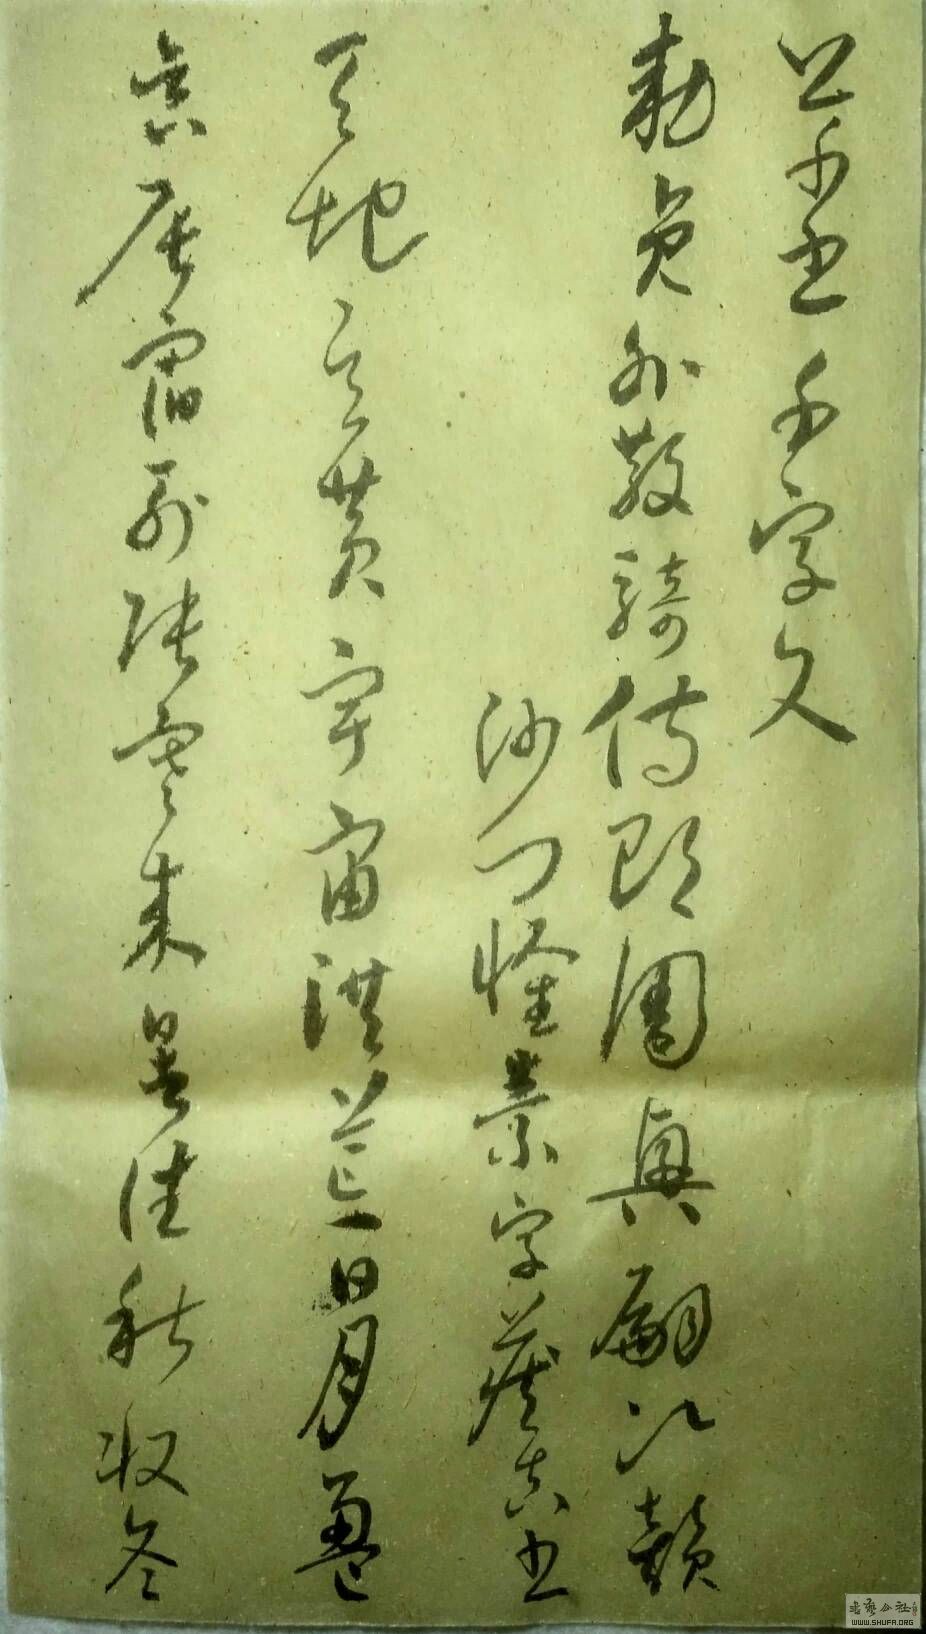 千字文
勅員外散騎侍郎周興嗣次韻
沙門懷素字藏真书
天地玄黃宇宙洪荒日月盈
昃辰宿列張寒來暑往秋收冬
书艺公社
WWW.SHUFA.ORG